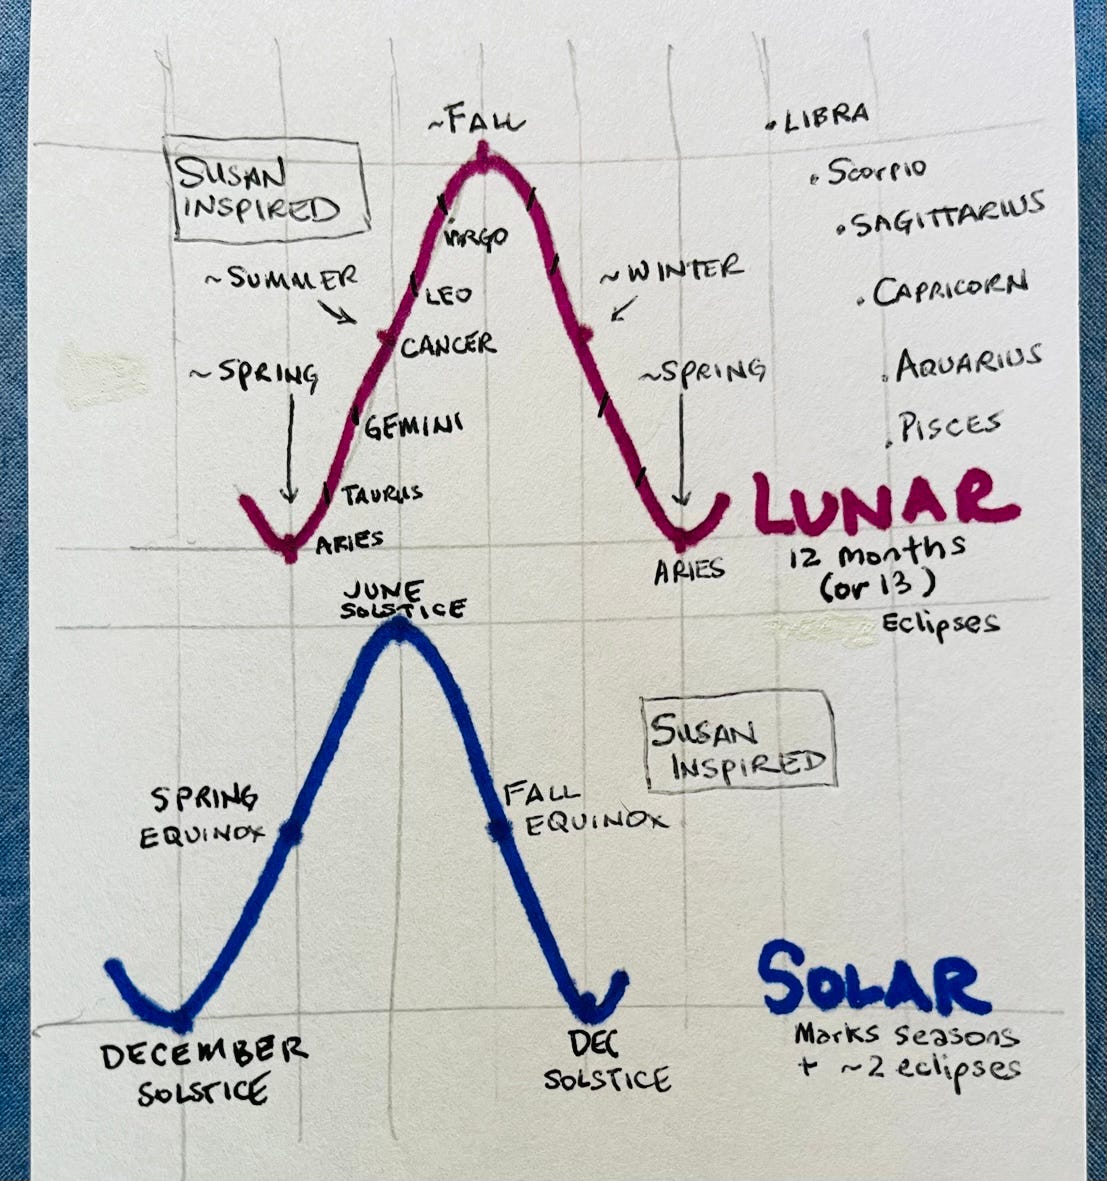 ~FALL
• LIBRA
SUSAN
INSPIRED
• Scorpio
• SAGITTARIUS
VIRGO
~SUMMER
~WINTER
LEO
• CAPRICORN
CANCER
~SPRING
~SPRING
• AQUARIUS
GEMINI
• PISCES
TAURUS
LUNAR
ARIES
ARIES
12 months
(or 13)
Eclipses
JUNE
SOLSTICE
SUSAN
INSPIRED
SPRING
EQUINOX
FALL
EQUINOX
SOLAR
Marks seasons
+ ~2 eclipses
DECEMBER
SOLSTICE
DEC
SOLSTICE